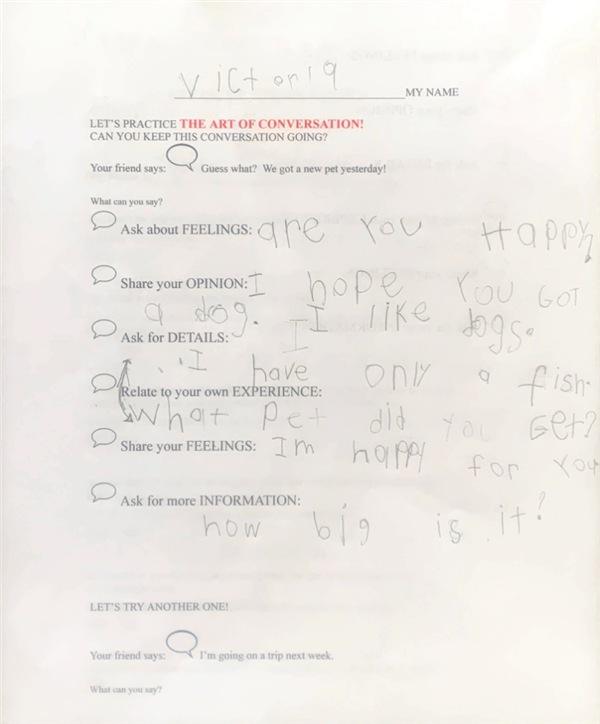 Victoria MY NAME
LET'S PRACTICE THE ART OF CONVERSATION!
CAN YOU KEEP THIS CONVERSATION GOING?
Your friend says: Guess what? We got a new pet yesterday!
What can you say?
Ask about FEELINGS: are You Happy
Share your OPINION: I hope You GOT
a dog. I like dogs.
Ask for DETAILS: I
I have only a fish.
Relate to your own EXPERIENCE:
What Pet did You GEt?
Share your FEELINGS: Im happy for You
Ask for more INFORMATION:
how big is it?
LET'S TRY ANOTHER ONE!
Your friend says: I'm going on a trip next week.
What can you say?